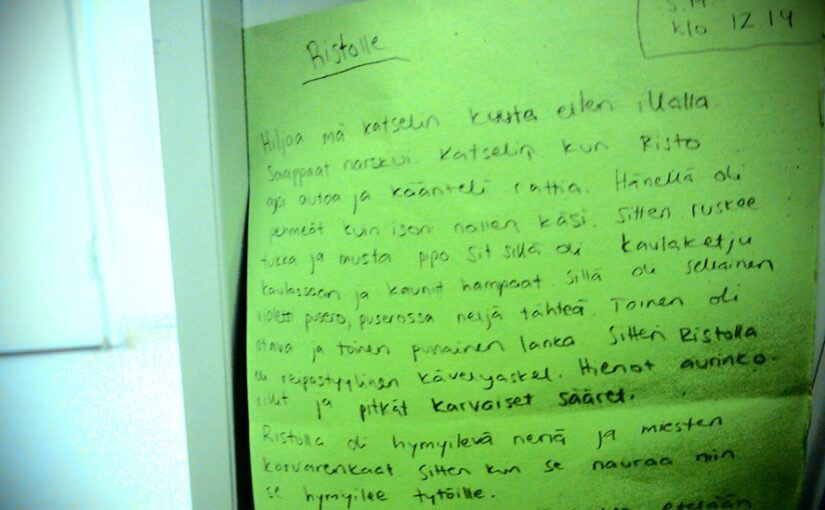 S.M
klo 12 14
Ristolle
Hiljaa mä katselin kuuta eilen illalla.
Saappaat narskui katselin kun Risto
ajoi autoa ja käänteli rattia. Hänellä oli
pehmeät kuin ison nallen käsi. Sitten ruskee
tukka ja musta pipo sit sillä oli kaulaketju
kaulassaan ja kauniit hampaat. Sillä oli sellainen
violetti pusero, puserossa neljä tähteä. Toinen oli
otava ja toinen punainen lanka. Sitten Ristolla
oli reipastyylinen kävelyaskel. Hienot aurinko-
rillit ja pitkät karvaiset sääret.
Ristolla oli hymyilevä nenä ja miesten
korvarenkaat sitten kun se nauraa niin
se hymyilee tytöille.
etelään